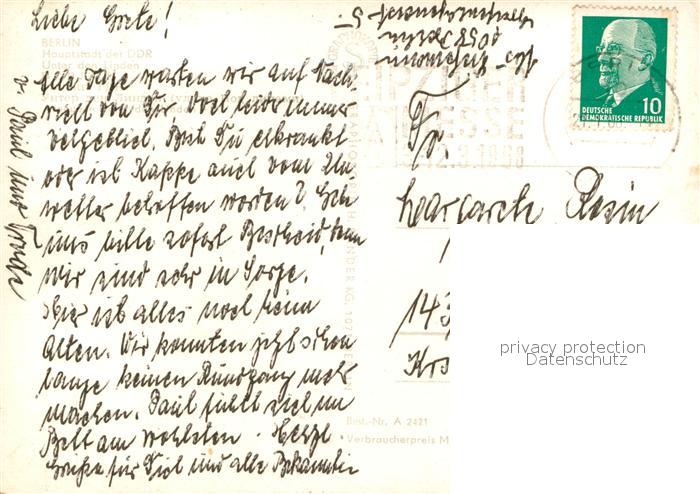 Liebe Grete!
BERLIN
Hauptstadt der DDR
Unter den Linden
Alle Tage warten wir auf Nach-
richt von Dir doch leider immer
vergeblich. Bist Du erkrankt
oder ist Kappe auch vom Un-
wetter betroffen worden? Gib
uns bitte sofort Bescheid, denn
wir sind sehr in Sorge.
Hier ist alles noch beim
Alten. Wir konnten jetzt schon
lange keinen Rundgang mehr
machen. Paul fühlt sich im
Bett am wohlsten. Herzl.
Grüße für Dich und alle Bekannten
v. Paul und Trude
Abs.
1058 Berlin
LEIPZIGER
MESSE
DEUTSCHE
DEMOKRATISCHE REPUBLIK
10
Fr.
Margarete Rosin
143
Krs
privacy protection
Datenschutz
Best.-Nr. A 2421
Verbraucherpreis M